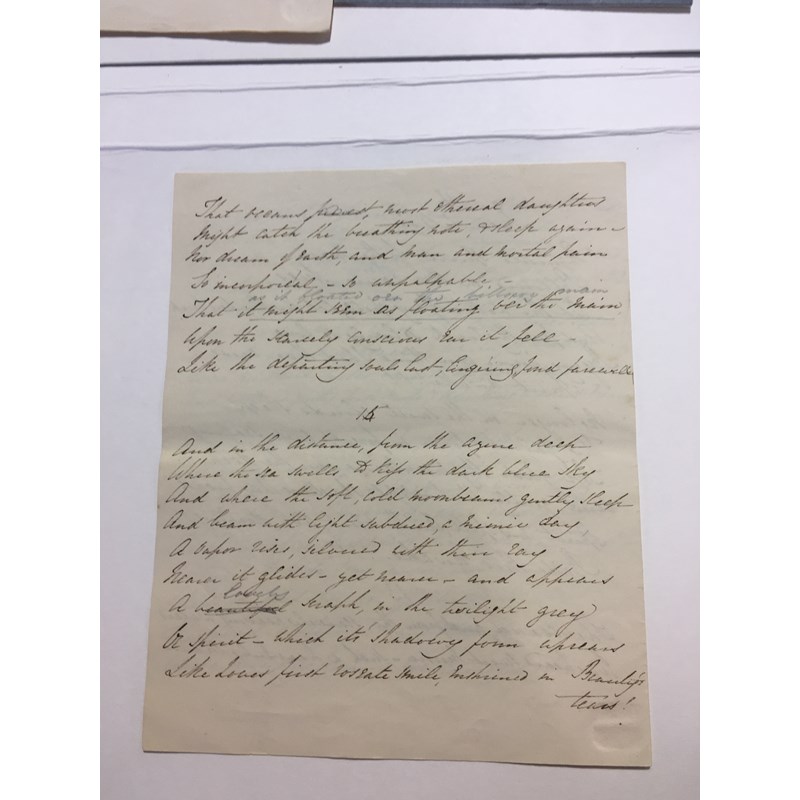 That oceans finest, most ethereal daughters
Might catch the breathing note, & sleep again –
Nor dream of Earth, and man and mortal pain
So incorporeal – so unpalpable –
as it floated oer the billowy main
That it might seem as floating oer the main
Upon the scarcely conscious ear it fell –
Like the departing souls last, lingering, fond farewell
15
And in the distance, from the azure deep
Where the sea swells to kiss the dark blue sky
And where the soft, cold moonbeams gently sleep
And beam with light subdued, a mimic day
A vapor rises, silvered with their ray
Nearer it glides – yet nearer – and appears
lovely
A beautiful seraph, in the twilight grey
Or spirit – which it's shadowy form uprears
Like Loves first roseate smile, enshrined in Beauty's
tears!